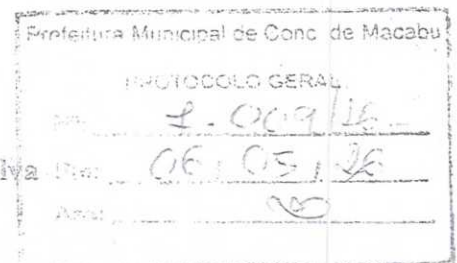 Prefeitura Municipal de Conc. de Macabu
PROTOCOLO GERAL
1.009/16
iva
06, 05, 16
Ass: